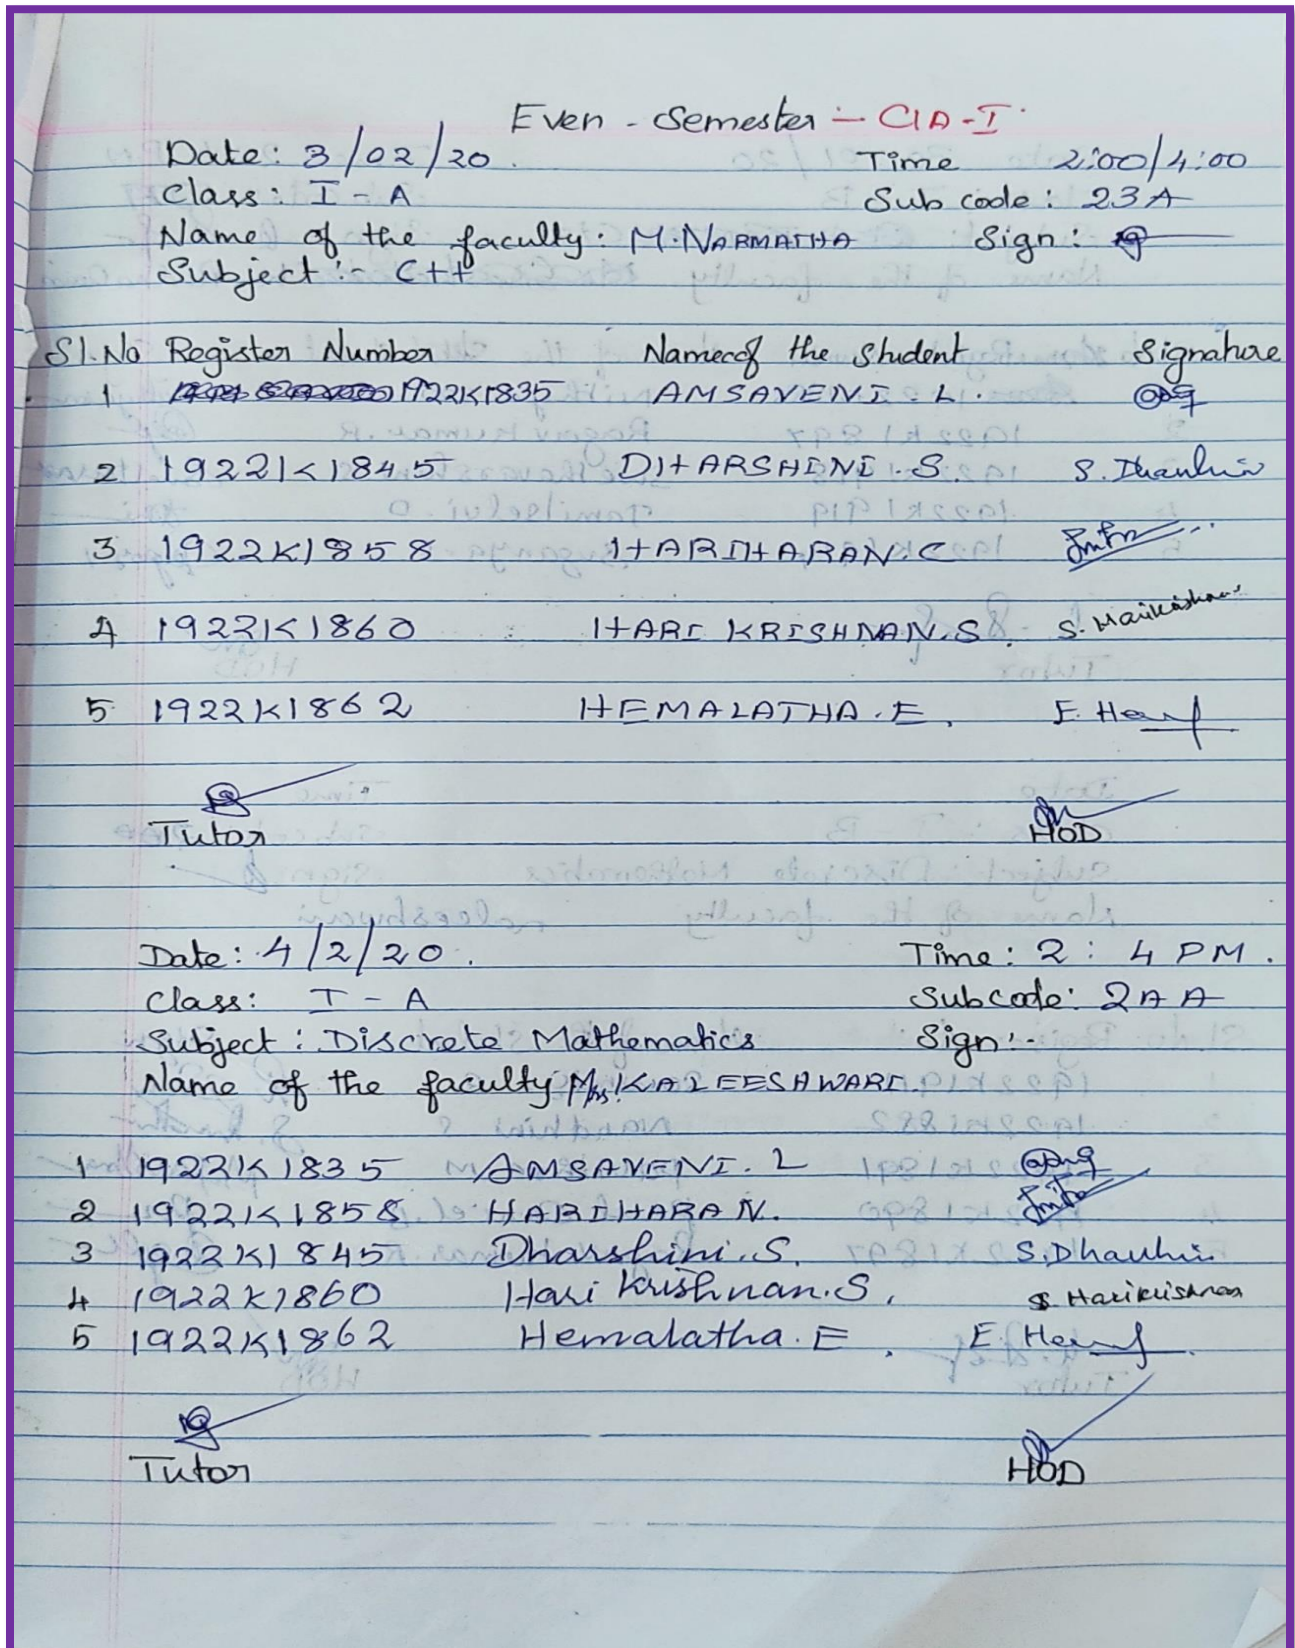 Even - Semester - CIA - I
Date: 3/02/20. Time 2:00/4:00
Class: I - A Sub code: 23A
Name of the faculty: M. NARMATHA Sign:
Subject:- C++
Sl.No Register Number Name of the Student Signature
1 1922K1835 AMSAVENI. L.
2 1922K1845 DHARSHINI. S.
3 1922K1858 HARIHARAN. C
4 1922K1860 HARI KRISHNAN. S. S. Harikrishnan
5 1922K1862 HEMALATHA. E.
Tutor HOD
Date: 4/2/20. Time: 2: 4 PM.
Class: I - A Subcode: 2AA
Subject: Discrete Mathematics Sign:-
Name of the faculty Mrs. KALEESHWARI.
1 1922K1835 AMSAVENI. L
2 1922K1858 HARIHARAN.
3 1922K1845 Dharshini. S.
4 1922K1860 Hari Krishnan. S. S. Harikrishnan
5 1922K1862 Hemalatha. E.
Tutor HOD